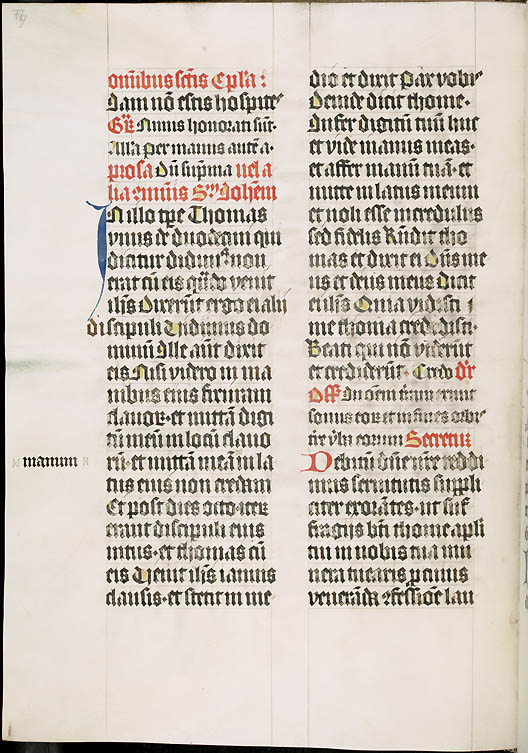 omībus sctīs Epla :
Iam nō estis hospite
Gr̄ Nimis honorati sūt·
Alla Per manus autē a·
prosa Dū supma vel a
lia cōmūis Sm Johēm
In illo tpe Thomas
vnus de duodecim qui
dicitur didimus non
erat cū eis qn̄do venit
ihs̄ Dixerūt ergo ei alij
discipuli Vidimus do
minū Ille aūt dixit
eis Nisi videro in ma
nibus eius fixuram
clauor· et mittā digi
tū meū in locū clauo
rū· et mittā meā in la
tus eius non credam
Et post dies octo iter
erant discipuli eius
intus· et thomas cū
eis Venit ihs̄ ianuis
clausis· et stetit in me
manum
dio et dixit Pax vobis
Deinde dicit thome·
Infer digitū tuū huc
et vide manus meas·
et affer manū tuā· et
mitte in latus meum
et noli esse incredulus
sed fidelis Rn̄dit tho
mas et dixit ei Dn̄s me
us et deus meus Dicit
ei ihs̄ Quia vidisti
me thoma credidisti·
Beati qui nōn viderūt
et crediderūt· Credo
Off In om̄em trām exiuit
sonus eor et in fines orbis
tr̄e v̄ba eorum Secretū
Debitū dn̄e nr̄e reddi
mus seruitutis suppli
citer exorātes· ut suf
fragijs bt̄i thome apli
tui in nobis tua mu
nera tuearis p cuius
venerāda cōfessiōe lau